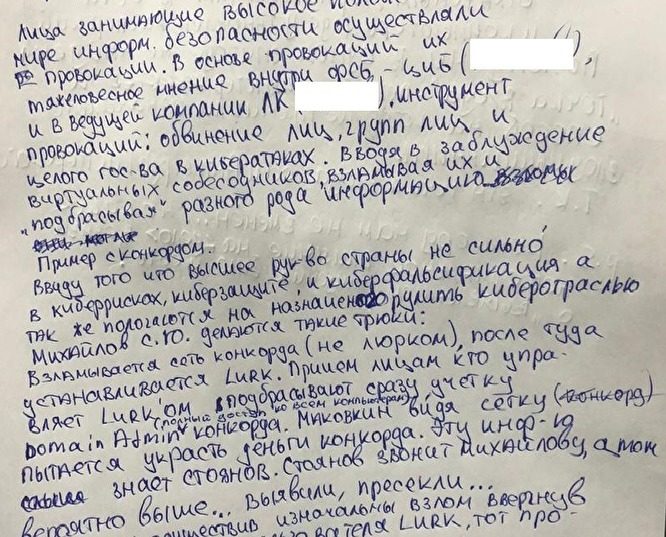 лица занимающие высокое
мире информ. безопасности осуществляли
провокации. В основе провокаций их
тяжеловесное мнение внутри ФСБ, - ЦИБ (
и в ведущей компании ЛК ( ), инструмент
провокаций: обвинение лиц, групп лиц и
целого гос-ва в кибератаках. Вводя в заблуждение
виртуальных собеседников, взламывая их и
"подбрасывая" разного рода информацию
Пример с конкордом.
Ввиду того что высшее рук-во страны не сильно
в киберрисках, киберзащите и киберфальсификация а
так же пологаются на назначеного рулить киберотраслью
Михайлов С.Ю. делаются такие трюки:
Взламывается сеть конкорда (не люрком), после туда
устанавливается Lurk. Причем лицам кто упра-
вляет Lurk'ом подбрасывают сразу учетку
(полный доступ ко всем компьютерам)
Domain Admin конкорда. Маковкин видя сетку (конкорд)
пытается украсть деньги конкорда. Эту инф-ю
знает Стоянов. Стоянов звонит Михайлову, а тот
вероятно выше... Выявили, пресекли...
изначальны взлом ввергнув
Lurk, тот про-